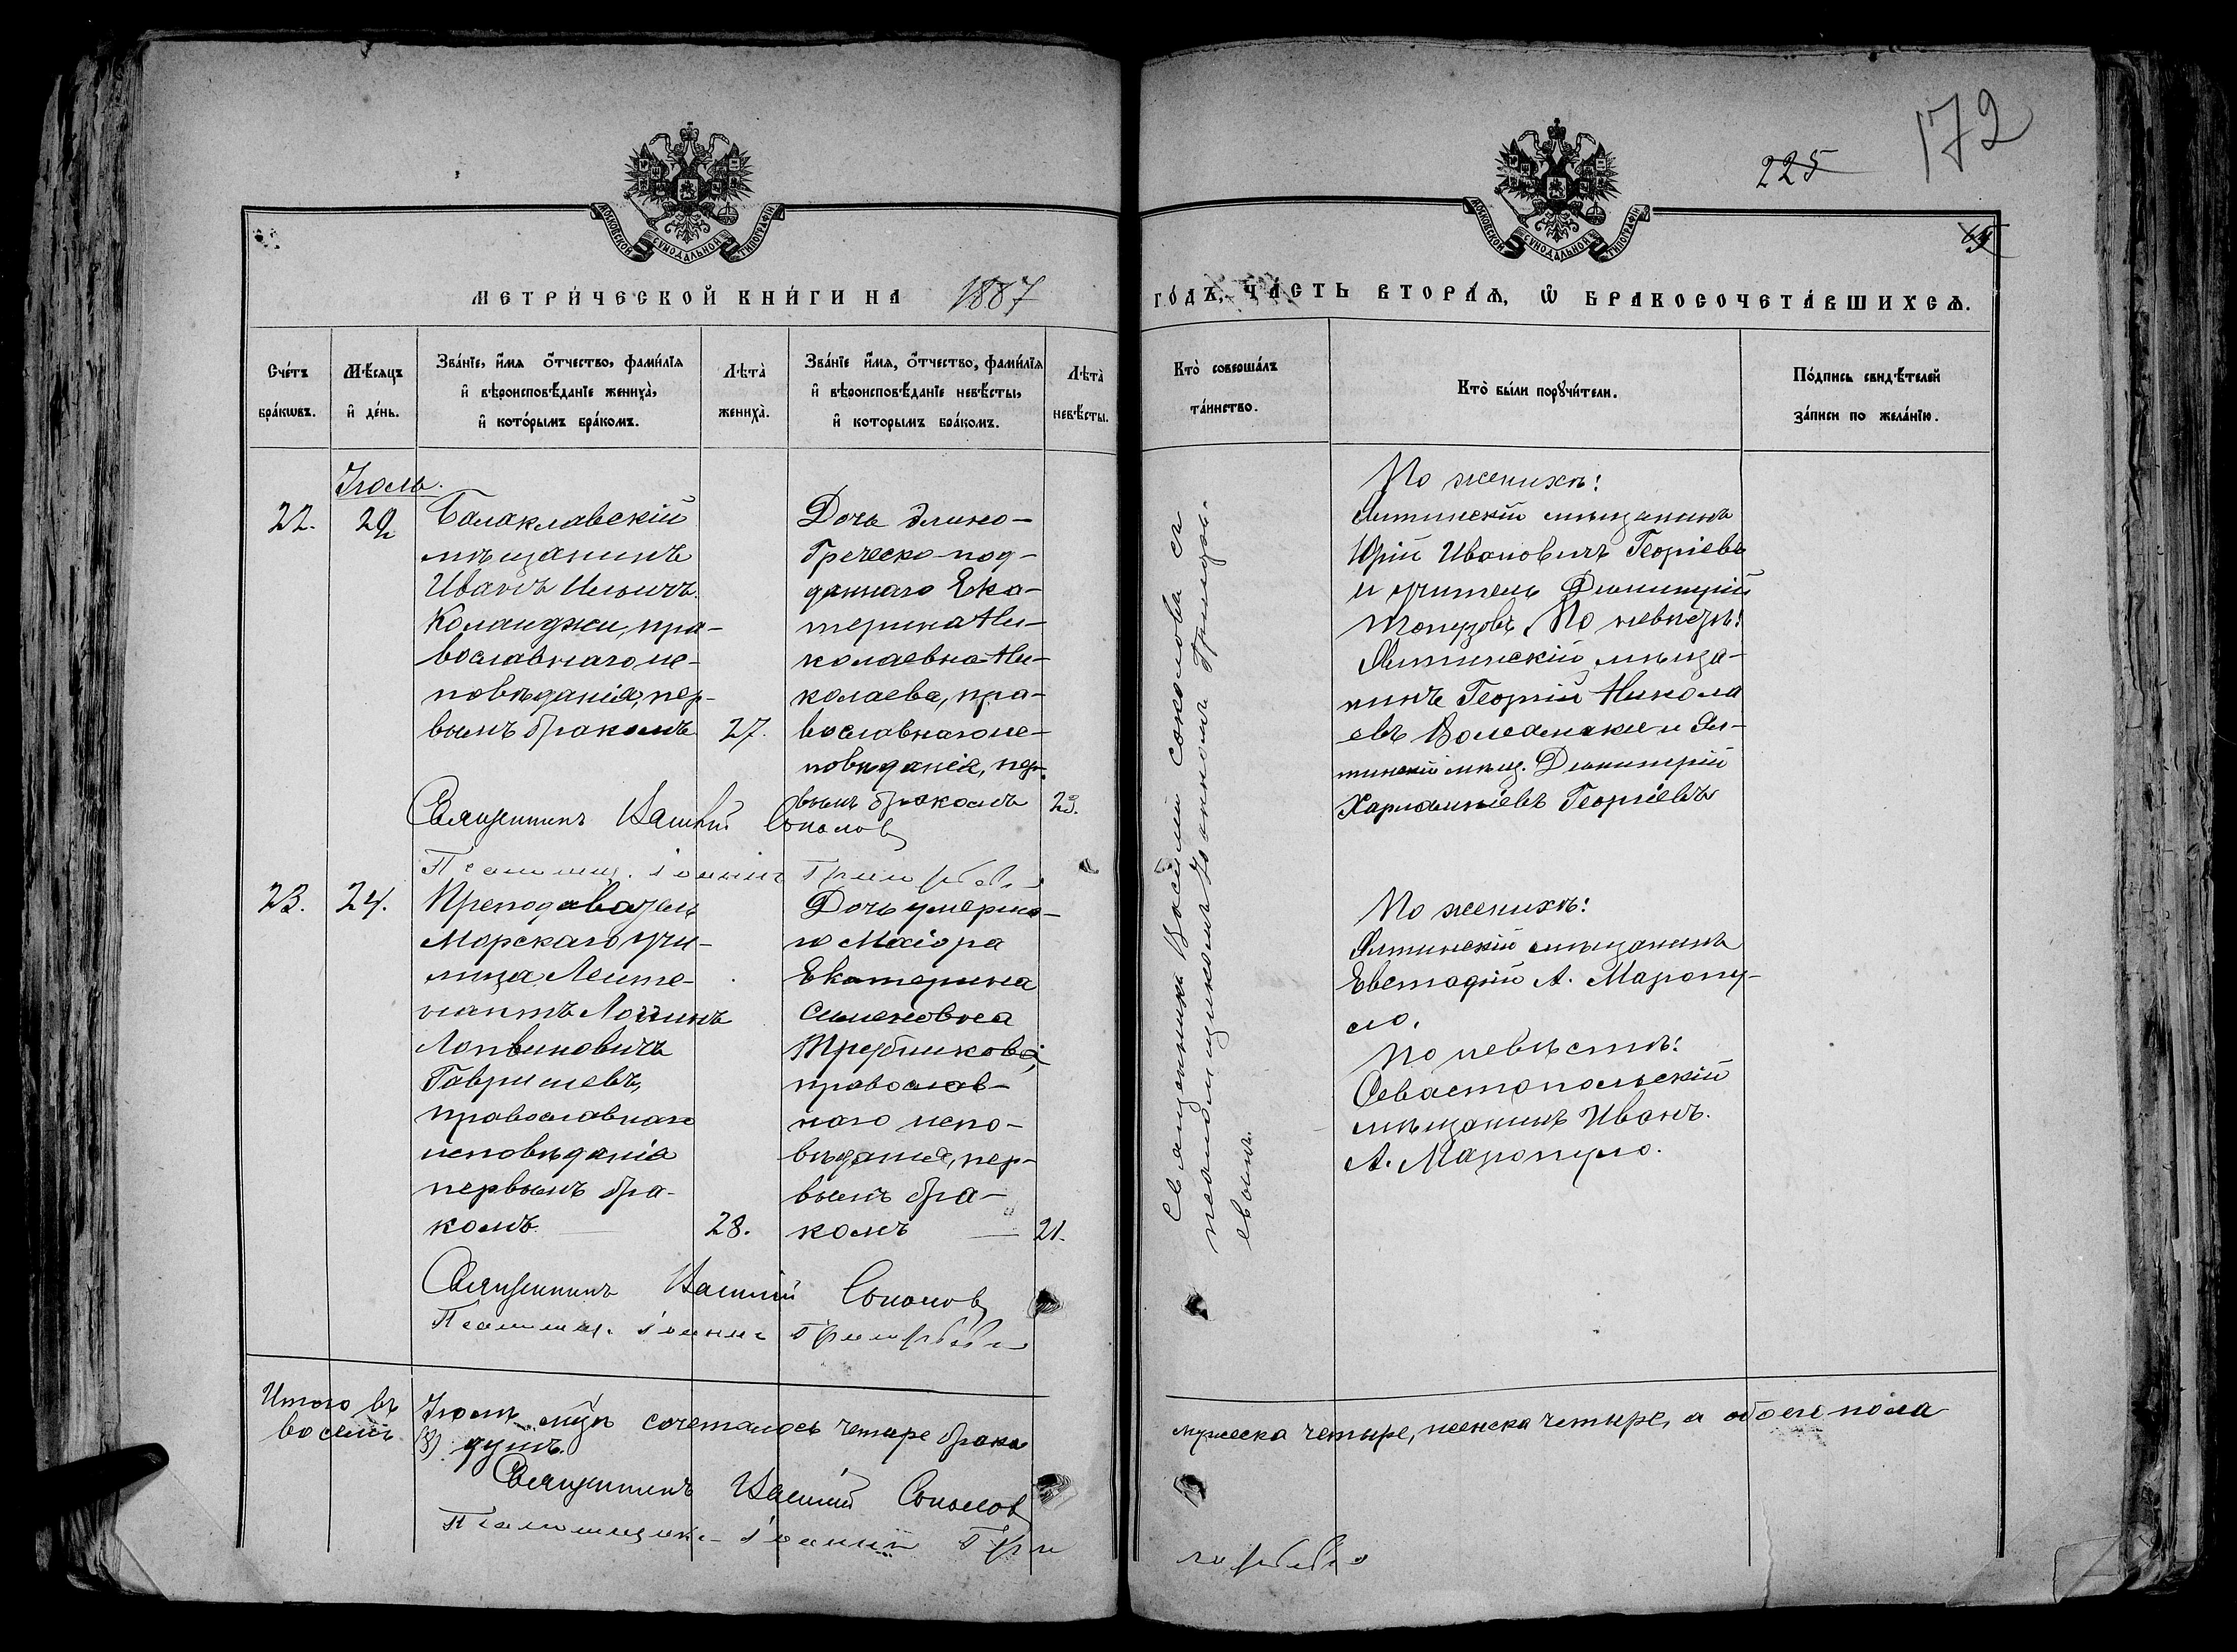 172
225
МОСКОВСКОЙ СѴНОДАЛЬНОЙ ТИПОГРАФІИ
МОСКОВСКОЙ СѴНОДАЛЬНОЙ ТИПОГРАФІИ
МЕТРИ́ЧЕСКОЙ КНИ́ГИ НА 1887
ГО́ДЪ, ЧА́СТЬ ВТОРА́Ѧ, Ѡ҆ БРАКОСОЧЕТА́ВШИХСѦ.
Сче́тъ бра́кωвъ.
Мѣ́сѧцъ и҆ де́нь.
Зва́нїе, и҆́мѧ ѻ҆́тчество, фами́лїѧ и҆ вѣроисповѣ́данїе жениха̀, и҆ кото́рымъ бра́комъ.
Лѣта̀ жениха̀.
Зва́нїе и҆́мѧ, ѻ҆́тчество, фами́лїѧ и҆ вѣроисповѣ́данїе невѣ́сты, и҆ которымъ бра́комъ.
Лѣта̀ невѣ́сты.
Кто̀ соверша́лъ та́инство.
Кто̀ бы́ли порꙋчи́тели.
По́дпись свидѣ́телей за́писи по жела́нїю.
Іюль.
22.
Балаклавскій
мѣщанинъ
Иванъ Ильичъ
Коланджи, пра-
вославнаго ис-
повѣданія, пер-
вымъ бракомъ
27.
Дочь
Греческо-под-
даннаго Ека-
терина Ни-
колаевна Ни-
колаева, пра-
вославнаго ис-
повѣданія, пер-
вымъ бракомъ
Священникъ Василій Соколовъ
Псаломщ. Іоаннъ
Священника Василія Соколова съ
псаломщикомъ Іоанномъ
евымъ.
По женихѣ:
Ялтинскій мѣщанинъ
Юрій Ивановичъ Георгіевъ
и учитель Димитрій
Топузовъ. По невѣстѣ:
Ялтинскій мѣща-
нинъ Георгій Никола
евъ и Ял-
тинскій мѣщ. Димитрій
Харлампіевъ Георгіевъ
23.
24.
Преподаватель
Морскаго учи-
лища Лейте-
нантъ Логгинъ
Логвиновичъ
Гавришевъ,
православнаго
исповѣданія
первымъ бра-
комъ
28.
Дочь умерша-
го Маіора
Екатерина
Семеновна
Трубникова,
православ-
наго испо-
вѣданія, пер-
вымъ бра-
комъ
21.
По женихѣ:
Ялтинскій мѣщанинъ
Евстафій А. Маропу-
ло.
По невѣстѣ:
Севастопольскій
мѣщанинъ Иванъ
А. Маропуло.
Священникъ Василій Соколовъ
Псаломщ. Іоаннъ
Итого въ Іюлѣ м-цѣ сочеталось четыре брака мужеска четыре, женска четыре, а обоего пола
восемь (8) душъ.
Священникъ Василій Соколовъ
Псаломщикъ Іоаннъ